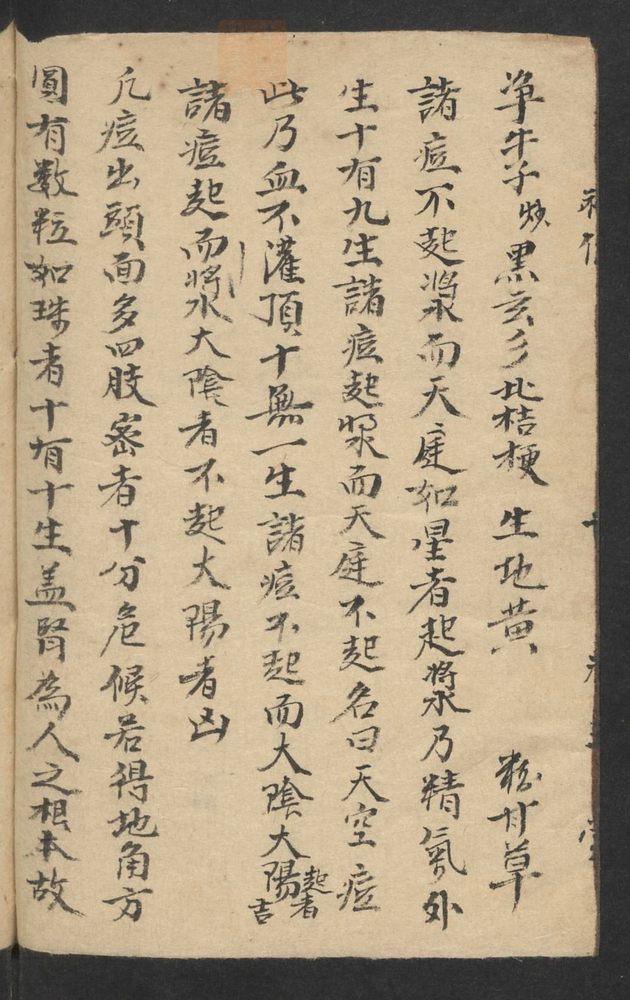 净牛子炒 黑玄彡 北桔梗 生地黄 粉甘草
諸痘不起漿而天庭如星者起漿乃精氣外
生十有九生諸痘起漿而天庭不起名曰天空痘
此乃血不灌頂十無一生諸痘不起而大陰大陽起者吉
諸痘起而漿大陰者不起大陽者凶
凢痘出頭面多四肢密者十分危候若得地角方
圓有数粒如珠者十有十生盖腎為人之根本故